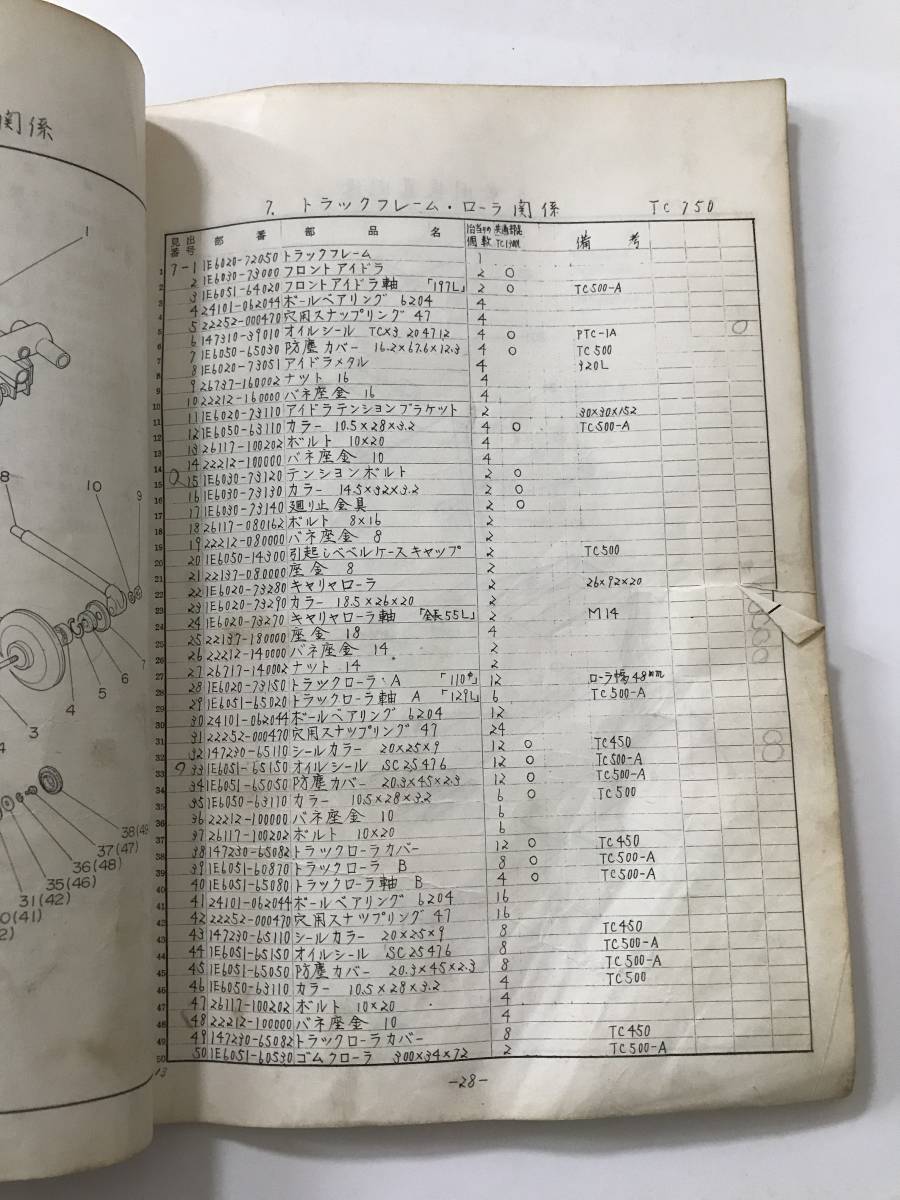 関係
1
8
10
9
7
6
5
4
3
38(49
37(47)
36(48)
35(46)
31(42)
0(41)
2)
7. トラックフレーム・ローラ関係 TC750
見出番号 部番 部品名 1台当りの個数 共通部品 備考
1 7-1 1E6020-72050 トラックフレーム 1
2 2 1E6030-73000 フロントアイドラ 2 ○
3 3 1E6051-64020 フロントアイドラ軸 「197L」 2 ○ TC500-A
4 4 24101-062044 ボールベアリング 6204 4
5 5 22252-000470 穴用スナップリング 47 4
6 6 147310-39010 オイルシール TCX3.204712 4 ○ PTC-1A
7 7 1E6050-65030 防塵カバー 16.2×67.6×12.3 4 ○ TC500
8 8 1E6020-73051 アイドラメタル 4 920L
9 9 26737-160002 ナット 16 4
10 10 22212-160000 バネ座金 16 4
11 11 1E6020-73110 アイドラテンションブラケット 2 30×30×152
12 12 1E6050-63110 カラー 10.5×28×3.2 4 ○ TC500-A
13 13 26117-100202 ボルト 10×20 4
14 14 22212-100000 バネ座金 10 4
15 15 1E6030-73120 テンションボルト 2 ○
16 16 1E6030-73130 カラー 14.5×32×3.2 2 ○
17 17 1E6030-73140 廻り止金具 2 ○
18 18 26117-080162 ボルト 8×16 2
19 19 22212-080000 バネ座金 8 2
20 20 1E6050-14300 引起しベベルケースキャップ 2 TC500
21 21 22137-080000 座金 8 2
22 22 1E6020-73280 キャリヤローラ 2 26×92×20
23 23 1E6020-73290 カラー 18.5×26×20 2
24 24 1E6020-73270 キャリヤローラ軸 「全長55L」 2 M14
25 25 22137-180000 座金 18 4
26 26 22212-140000 バネ座金 14 2
27 27 26717-140002 ナット 14 2
28 28 1E6020-73150 トラックローラ.A 「110φ」 12 ローラ幅48mm
29 29 1E6051-65020 トラックローラ軸 A 「129L」 6 TC500-A
30 30 24101-062044 ボールベアリング 6204 12
31 31 22252-000470 穴用スナップリング 47 24
32 32 147230-65110 シールカラー 20×25×9 12 ○ TC450
33 33 1E6051-65150 オイルシール SC25476 12 ○ TC500-A
34 34 1E6051-65050 防塵カバー 20.3×45×2.3 12 ○ TC500-A
35 35 1E6050-63110 カラー 10.5×28×3.2 6 ○ TC500
36 36 22212-100000 バネ座金 10 6
37 37 26117-100202 ボルト 10×20 6
38 38 147230-65082 トラックローラカバー 12 ○ TC450
39 39 1E6051-60870 トラックローラ B 8 ○ TC500-A
40 40 1E6051-65080 トラックローラ軸 B 4 ○ TC500-A
41 41 24101-062044 ボールベアリング 6204 16
42 42 22252-000470 穴用スナップリング 47 16
43 43 147230-65110 シールカラー 20×25×9 8 TC450
44 44 1E6051-65150 オイルシール SC25476 8 TC500-A
45 45 1E6051-65050 防塵カバー 20.3×45×2.3 8 TC500-A
46 46 1E6050-63110 カラー 10.5×28×3.2 4 TC500
47 47 26117-100202 ボルト 10×20 4
48 48 22212-100000 バネ座金 10 4
49 49 147230-65082 トラックローラカバー 8 TC450
50 50 1E6051-60530 ゴムクローラ 300×34×72 2 TC500-A
13
-28-